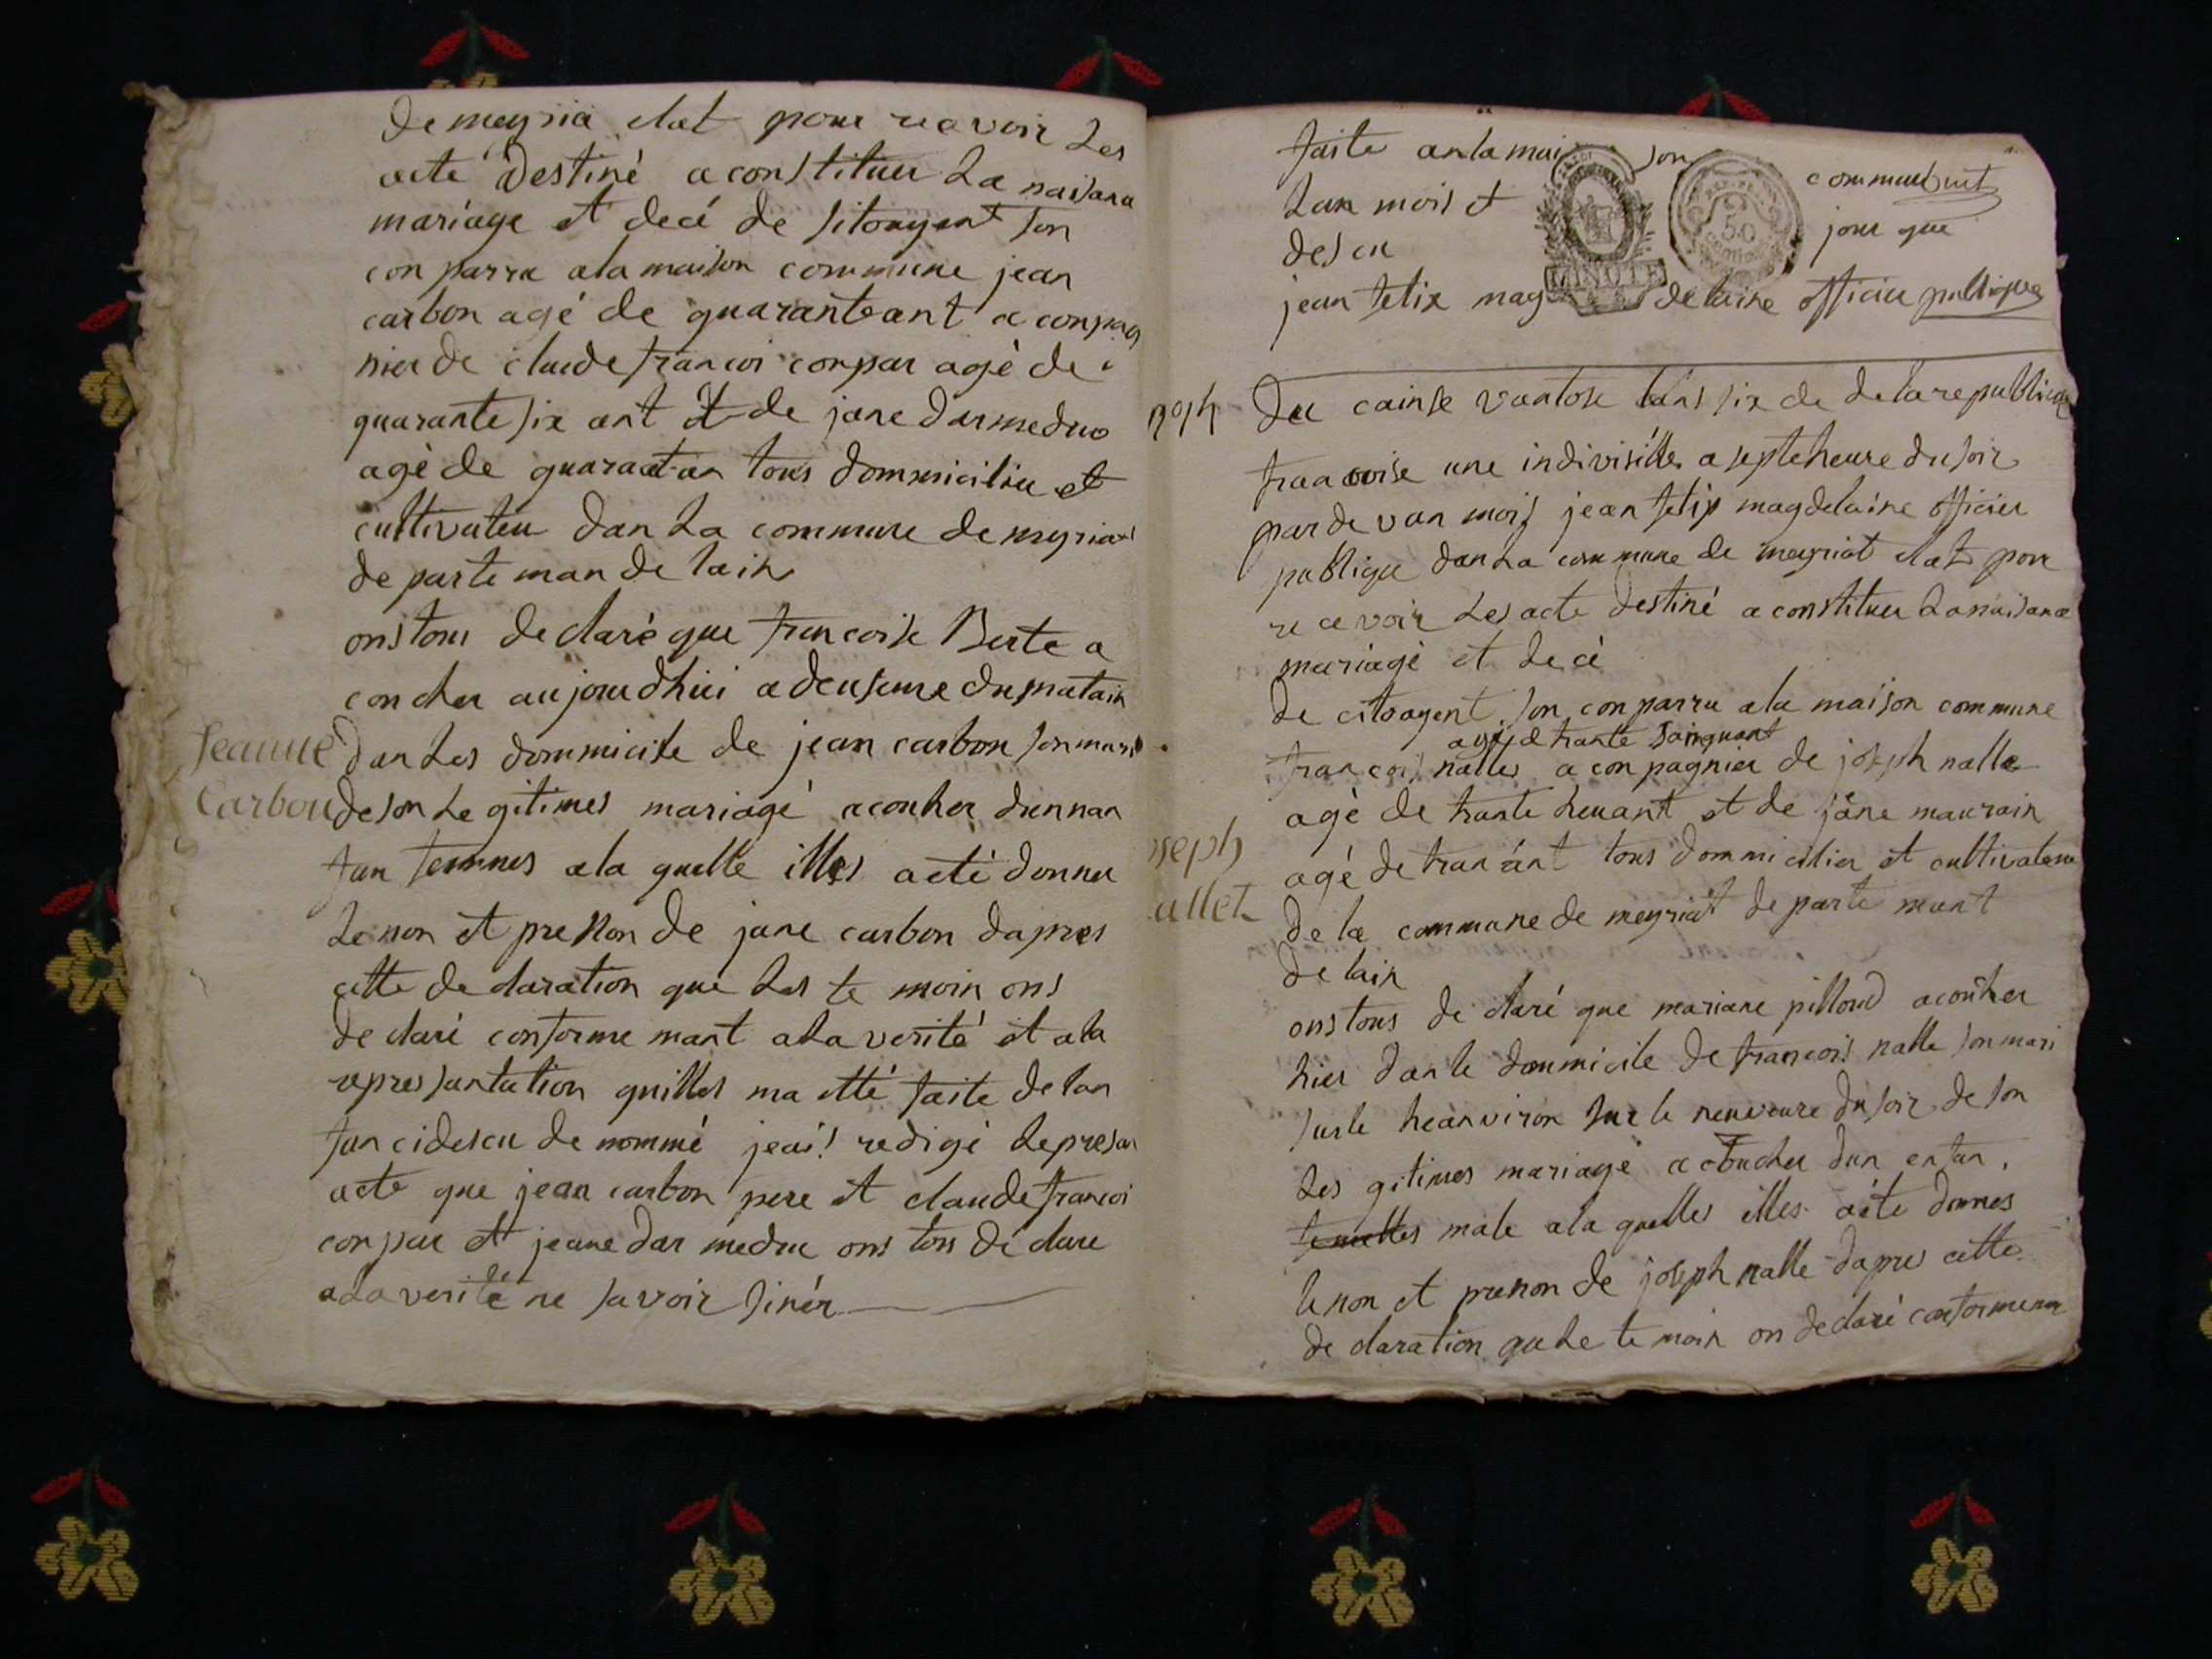 De meyria elat pour recevoir Les
acte Destiné a constituer La naisana
mariage et decé de sitoayent son
con parru ala maison commune jean
carbon agé de quaranteant a conpag
nier de claude francoi conpar agé de
quarante six ant et de jane darmeduo
agé de quarant an tous dommicilieu et
cultivateu dan La commune de meyriat
de parte man de lain
ons tous de claré que francoise Berte a
coucher aujourdhui a deuseure du matain
dan Les dommicile de jean carbon son mari
Jeanne
Carbon
de son Le gitimes mariagé acouher dunnan
fan femmes ala quelle illes acté donner
Le non et prenon de jane carbon dapres
cette de claration que Les te moin ons
de claré conforme mant ala verité et ala
represantation quilles ma etté faite de lan
fan cidescu de nommé jeais redigé le presan
acte que jean carbon pere et claude francoi
conpar et jeane dar meduc ons tous de clare
ala verité ne savoir sinér
faite anla mai son commubuit
Lan mois et jour que
descu
MINUTE
50
jean felix mag delaine officier publique
Du cainse vantose Lans six de de la republique
francoise une indivisilles a septeheure du soir
par de van mois jean felix magdelaine officier
publique dan La commune de meyriat elat pour
re cevoir Les acte destiné a constituer La naisance
mariagé et decé
De citoayent son conparru ala maison commune
agé de trante sainquant
francois nalles a conpagnier de joseph nalle
agé de trante heuant et de jane maurain
seph
allet
agé de tran ant tous dommicilier et cultivateur
de la commune de meyriat de parte mant
de lain
ons tous de claré que mariane pilloud acouher
hier dan le dommicile de francois nalle son mari
sur le heanviron sur le neuveure du soir de son
Les gitimes mariagé acoucher dun enfan
femelles male ala quelles illes aété donnes
le non et prenon de joseph nalle dapres cette
de claration que Le te moin on declaré conformeman